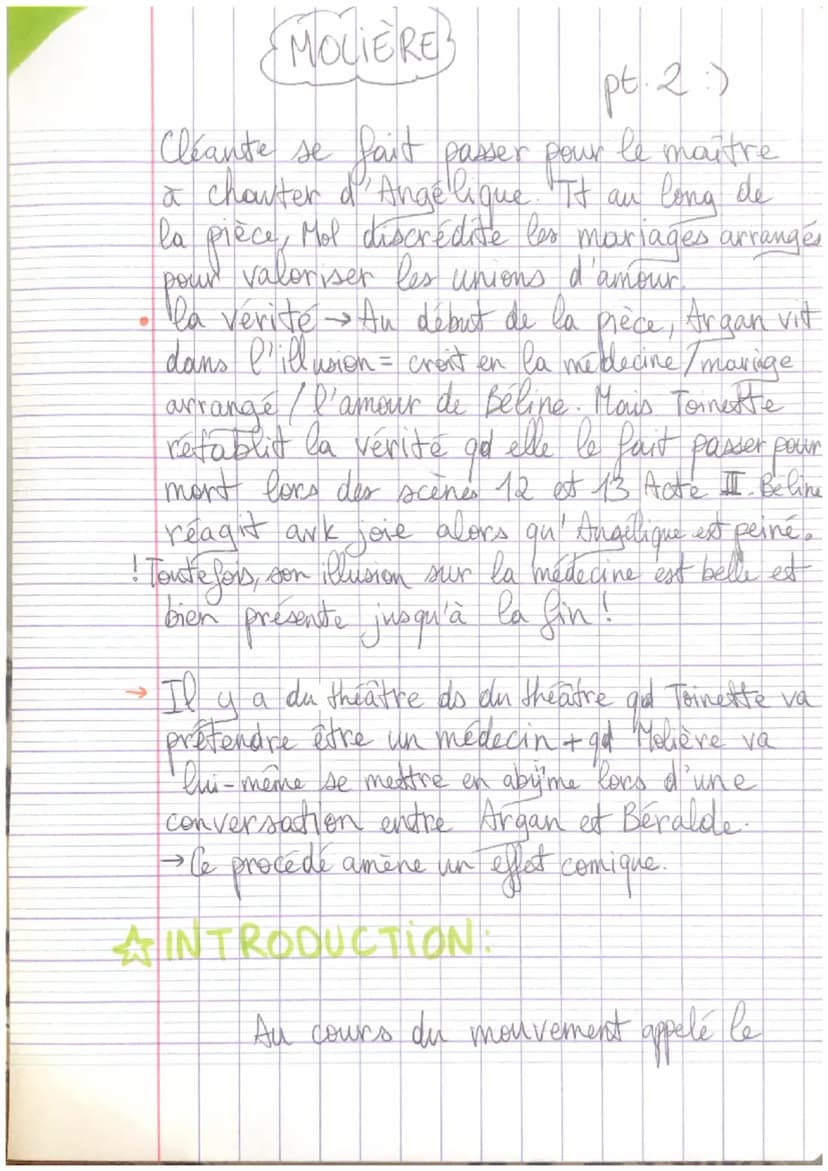 MOLIÈRE
pt. 2 :)
Cléante se fait passer pour le maître
à chanter d'Angélique. Tt au long de
la pièce, Mol discrédite les mariages arrangés
pour valoriser les unions d'amour.
• la vérité → Au début de la pièce, Argan vit
dans l'illusion = croit en la médecine / mariage
arrangé / l'amour de Béline. Mais Toinette
rétablit la vérité qd elle le fait passer pour
mort lors des scènes 12 et 13 Acte II. Béline
réagit avk joie alors qu'Angélique est peiné.
! Toutefois, son illusion sur la médecine est belle et
bien présente jusqu'à la fin !
→ Il y a du théâtre ds du théâtre qd Toinette va
prétendre être un médecin + qd Molière va
lui-même se mettre en abyme lors d'une
conversation entre Argan et Béralde.
→ Ce procédé amène un effet comique.
☆ INTRODUCTION:
Au cours du mouvement appelé le